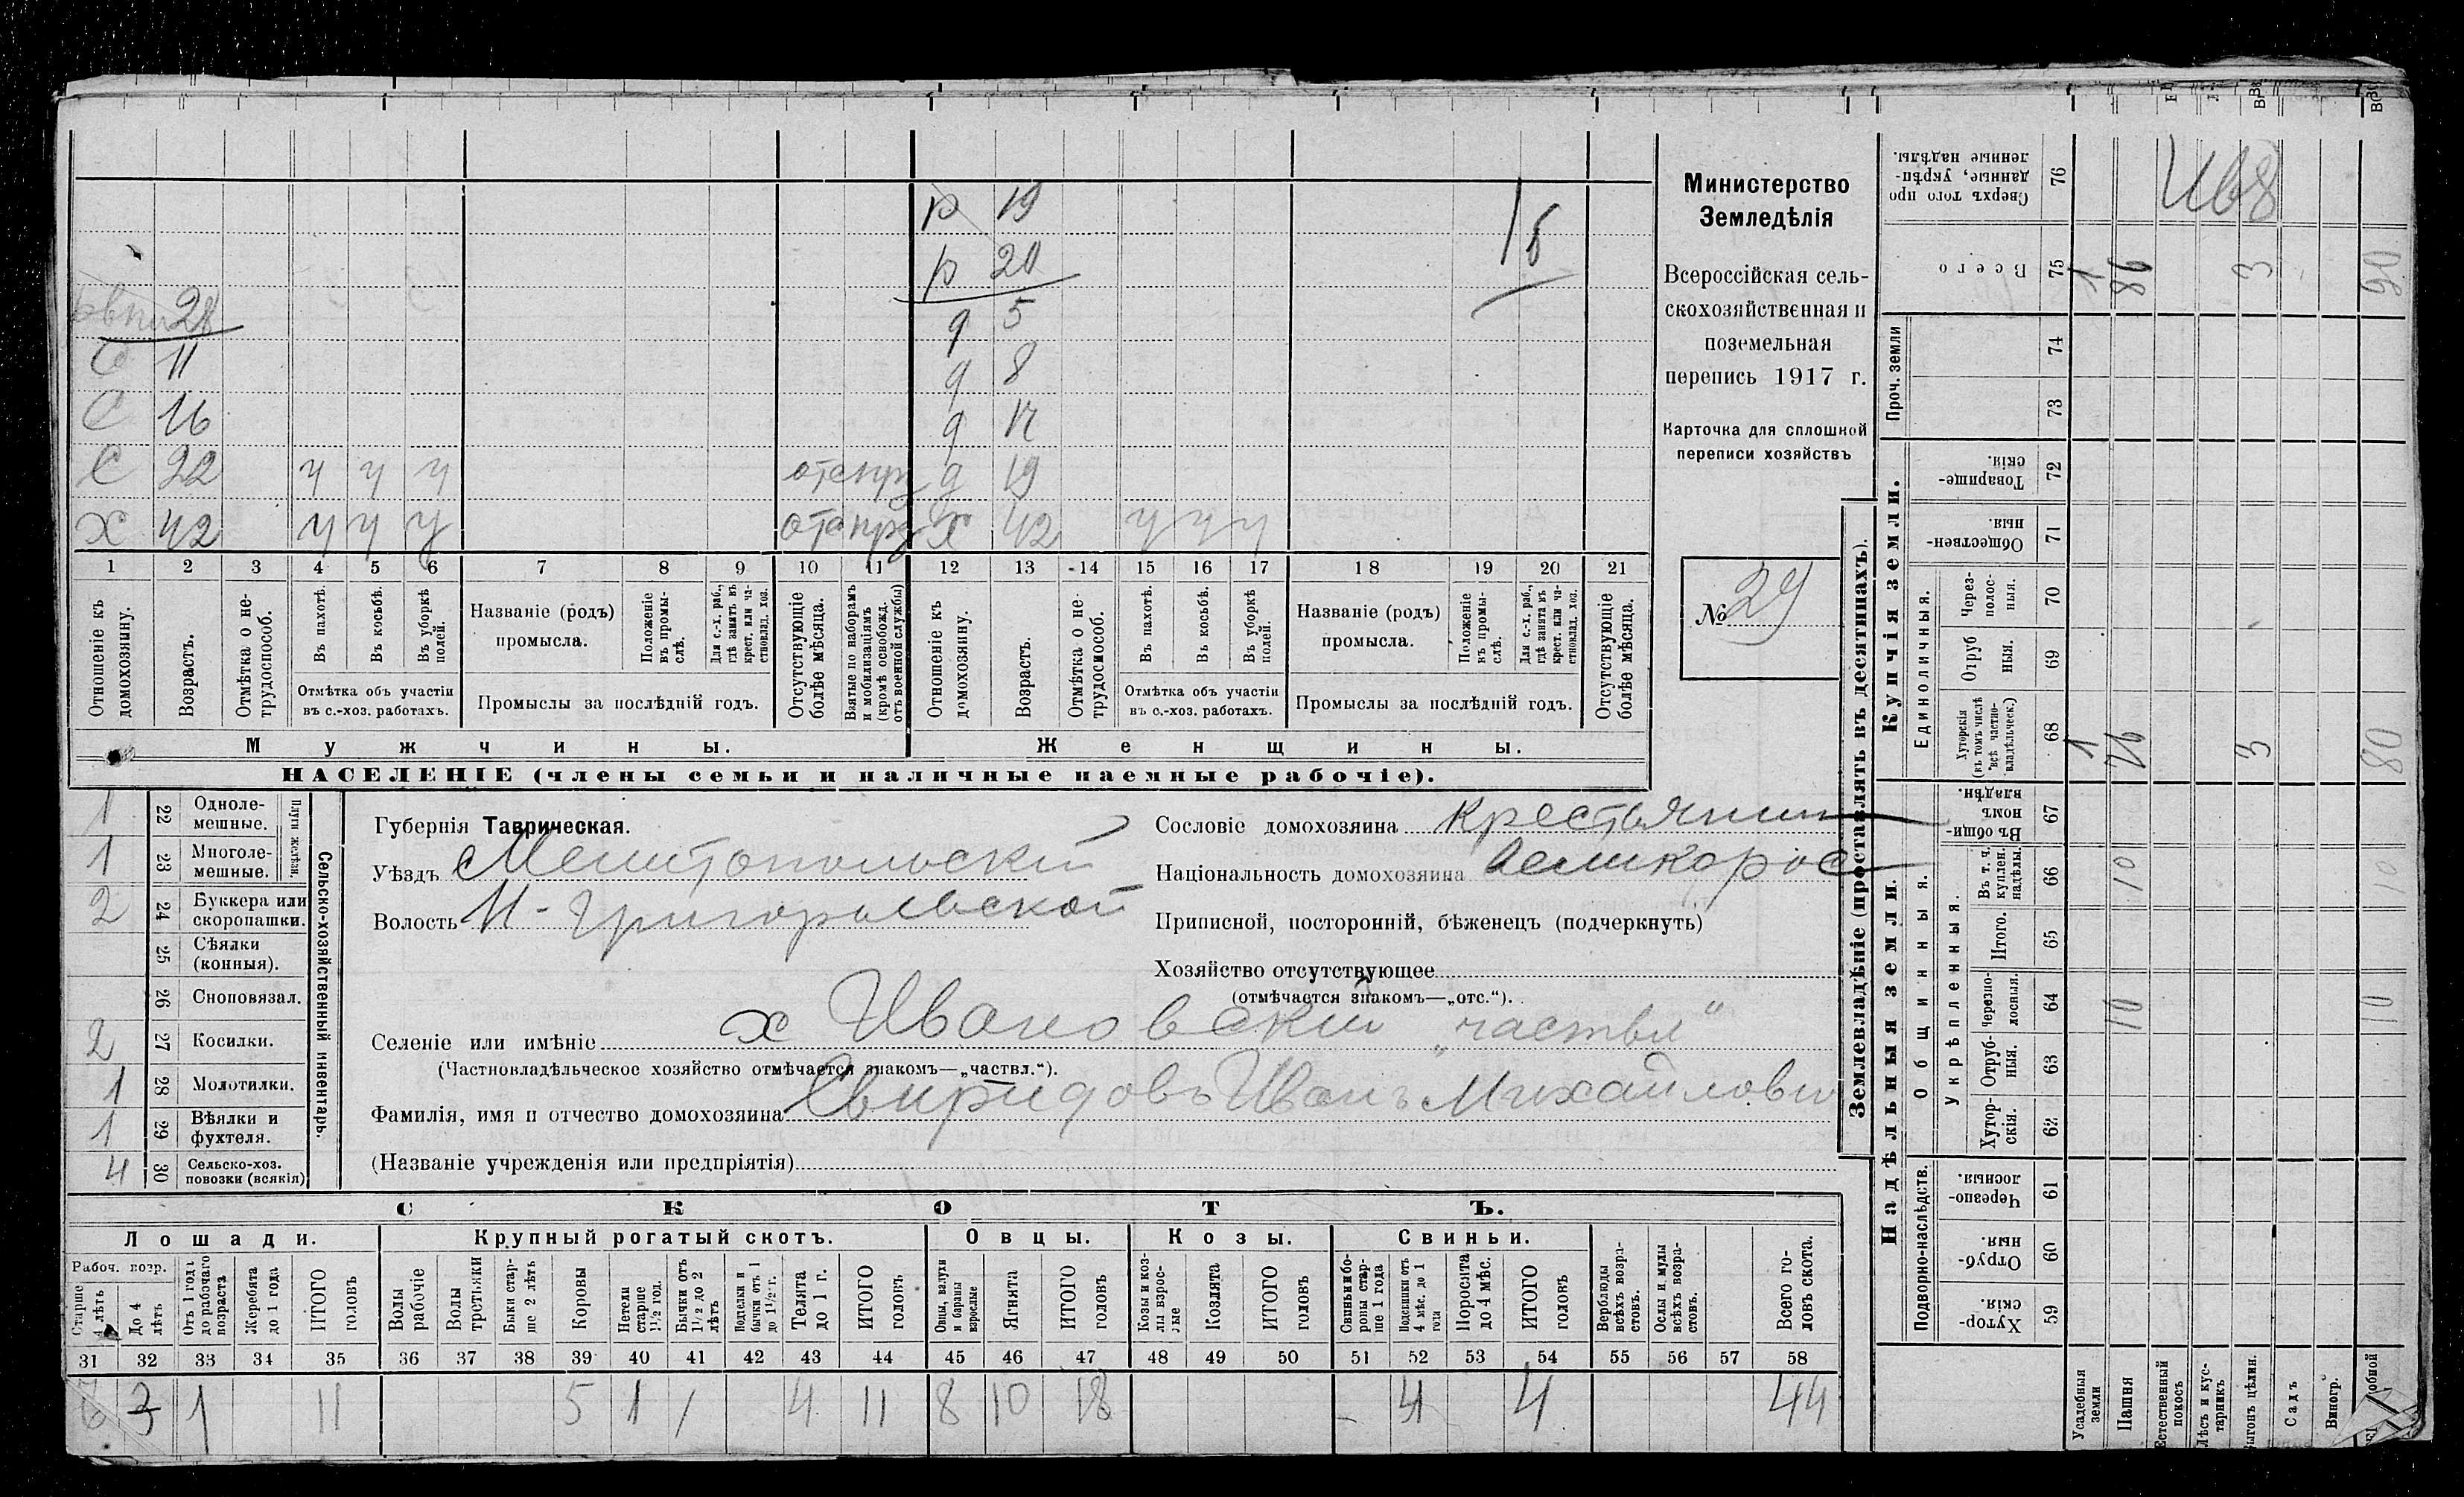 р 19
р 20
28
д 5
С 11
д 8
С 16
д 12
С 22 ч ч ч отс пр д 19
Х 42 ч ч ч отс пр Х 42 ч ч ч
15
1 2 3 4 5 6 7 8 9 10 11 12 13 14 15 16 17 18 19 20 21
Отношеніе къ домохозяину.
Возрастъ.
Отмѣтка о нетрудоспособ.
Въ пахотѣ.
Въ косьбѣ.
Въ уборкѣ полей.
Отмѣтка объ участіи
въ с.-хоз. работахъ.
Названіе (родъ)
промысла.
Положеніе въ промыслѣ.
Для с.-х. раб., гдѣ занятъ въ крест. или частновлад. хоз.
Промыслы за послѣдній годъ.
Отсутствующіе болѣе мѣсяца.
Взятые по наборамъ и мобилизаціямъ (кромѣ освобожд. отъ военной службы)
Отношеніе къ домохозяину.
Возрастъ.
Отмѣтка о нетрудоспособ.
Въ пахотѣ.
Въ косьбѣ.
Въ уборкѣ полей.
Отмѣтка объ участіи
въ с.-хоз. работахъ.
Названіе (родъ)
промысла.
Положеніе въ промыслѣ.
Для с.-х. раб., гдѣ занята въ крест. или частновлад. хоз.
Промыслы за послѣдній годъ.
Отсутствующіе болѣе мѣсяца.
Мужчины.
Женщины.
НАСЕЛЕНІЕ (члены семьи и наличные наемные рабочіе).
Министерство
Земледѣлія
Всероссійская сель-
скохозяйственная и
поземельная
перепись 1917 г.
Карточка для сплошной
переписи хозяйствъ
№ 29
Сельско-хозяйственный инвентарь.
Плуги желѣзн.
1 22 Однолемешные.
1 23 Многолемешные.
2 24 Буккера или скоропашки.
25 Сѣялки (конныя).
26 Сноповязал.
2 27 Косилки.
1 28 Молотилки.
1 29 Вѣялки и фухтеля.
4 30 Сельско-хоз. повозки (всякія)
Губернія Таврическая.
Уѣздъ Мелитопольскій
Волость Н-Григорьевской
Сословіе домохозяина крестьянин
Національность домохозяина великорос
Приписной, посторонній, бѣженецъ (подчеркнуть)
Хозяйство отсутствующее
(отмѣчается знакомъ—„отс.“).
Селеніе или имѣніе х Ивановский „частвл“
(Частновладѣльческое хозяйство отмѣчается знакомъ—„частвл.“).
Фамилія, имя и отчество домохозяина Свиридовъ Иванъ Михайлович
(Названіе учрежденія или предпріятія)
СКОТЪ.
Лошади.
Крупный рогатый скотъ.
Овцы.
Козы.
Свиньи.
Рабоч. возр.
Старше 4 лѣтъ
До 4 лѣтъ
Отъ 1 года до рабочаго возраста
Жеребята до 1 года
ИТОГО головъ
Волы рабочіе
Волы третьяки
Быки старше 2 лѣтъ
Коровы
Нетели старше 1½ год.
Бычки отъ 1½ до 2 лѣтъ
Подтелки и бычки отъ 1 до 1½ г.
Телята до 1 г.
ИТОГО головъ
Овцы, валухи и бараны взрослые
Ягнята
ИТОГО головъ
Козы и козлы взрослые
Козлята
ИТОГО головъ
Свиньи и боровы старше 1 года
Подсвинки отъ 4 мѣс. до 1 года
Поросята до 4 мѣс.
ИТОГО головъ
Верблюды всѣхъ возрастовъ.
Ослы и мулы всѣхъ возрастовъ.
Всего головъ скота.
31 32 33 34 35 36 37 38 39 40 41 42 43 44 45 46 47 48 49 50 51 52 53 54 55 56 57 58
3 1 11 5 1 1 4 11 8 10 18 - 4 4 44
Землевладѣніе (проставлять въ десятинахъ).
Сверхъ того проданные, укрѣпленные надѣлы. 76
Всего 75 1 86 3 90
Проч. земли
74
73
Купчія земли.
Товарищескія. 72
Общественныя. 71
Единоличныя.
Черезполосныя. 70
Отрубныя. 69
Хуторскія (въ томъ числѣ всѣ частновладѣльческ.) 68 1 76 3 80
Надѣльныя земли.
Въ общинномъ владѣн. 67
Общинныя.
Укрѣпленныя.
Въ т. ч. куплен. надѣлы. 66 10 10
Итого. 65
Черезполосныя. 64 10 10
Отрубныя. 63
Хуторскія. 62
Подворно-наслѣдств.
Черезполосныя. 61
Отрубныя 60
Хуторскія. 59
Усадебныя земли
Пашня
Естественный покосъ
Лѣсъ и кустарникъ
Выгонъ цѣлин.
Садъ
Виногр.